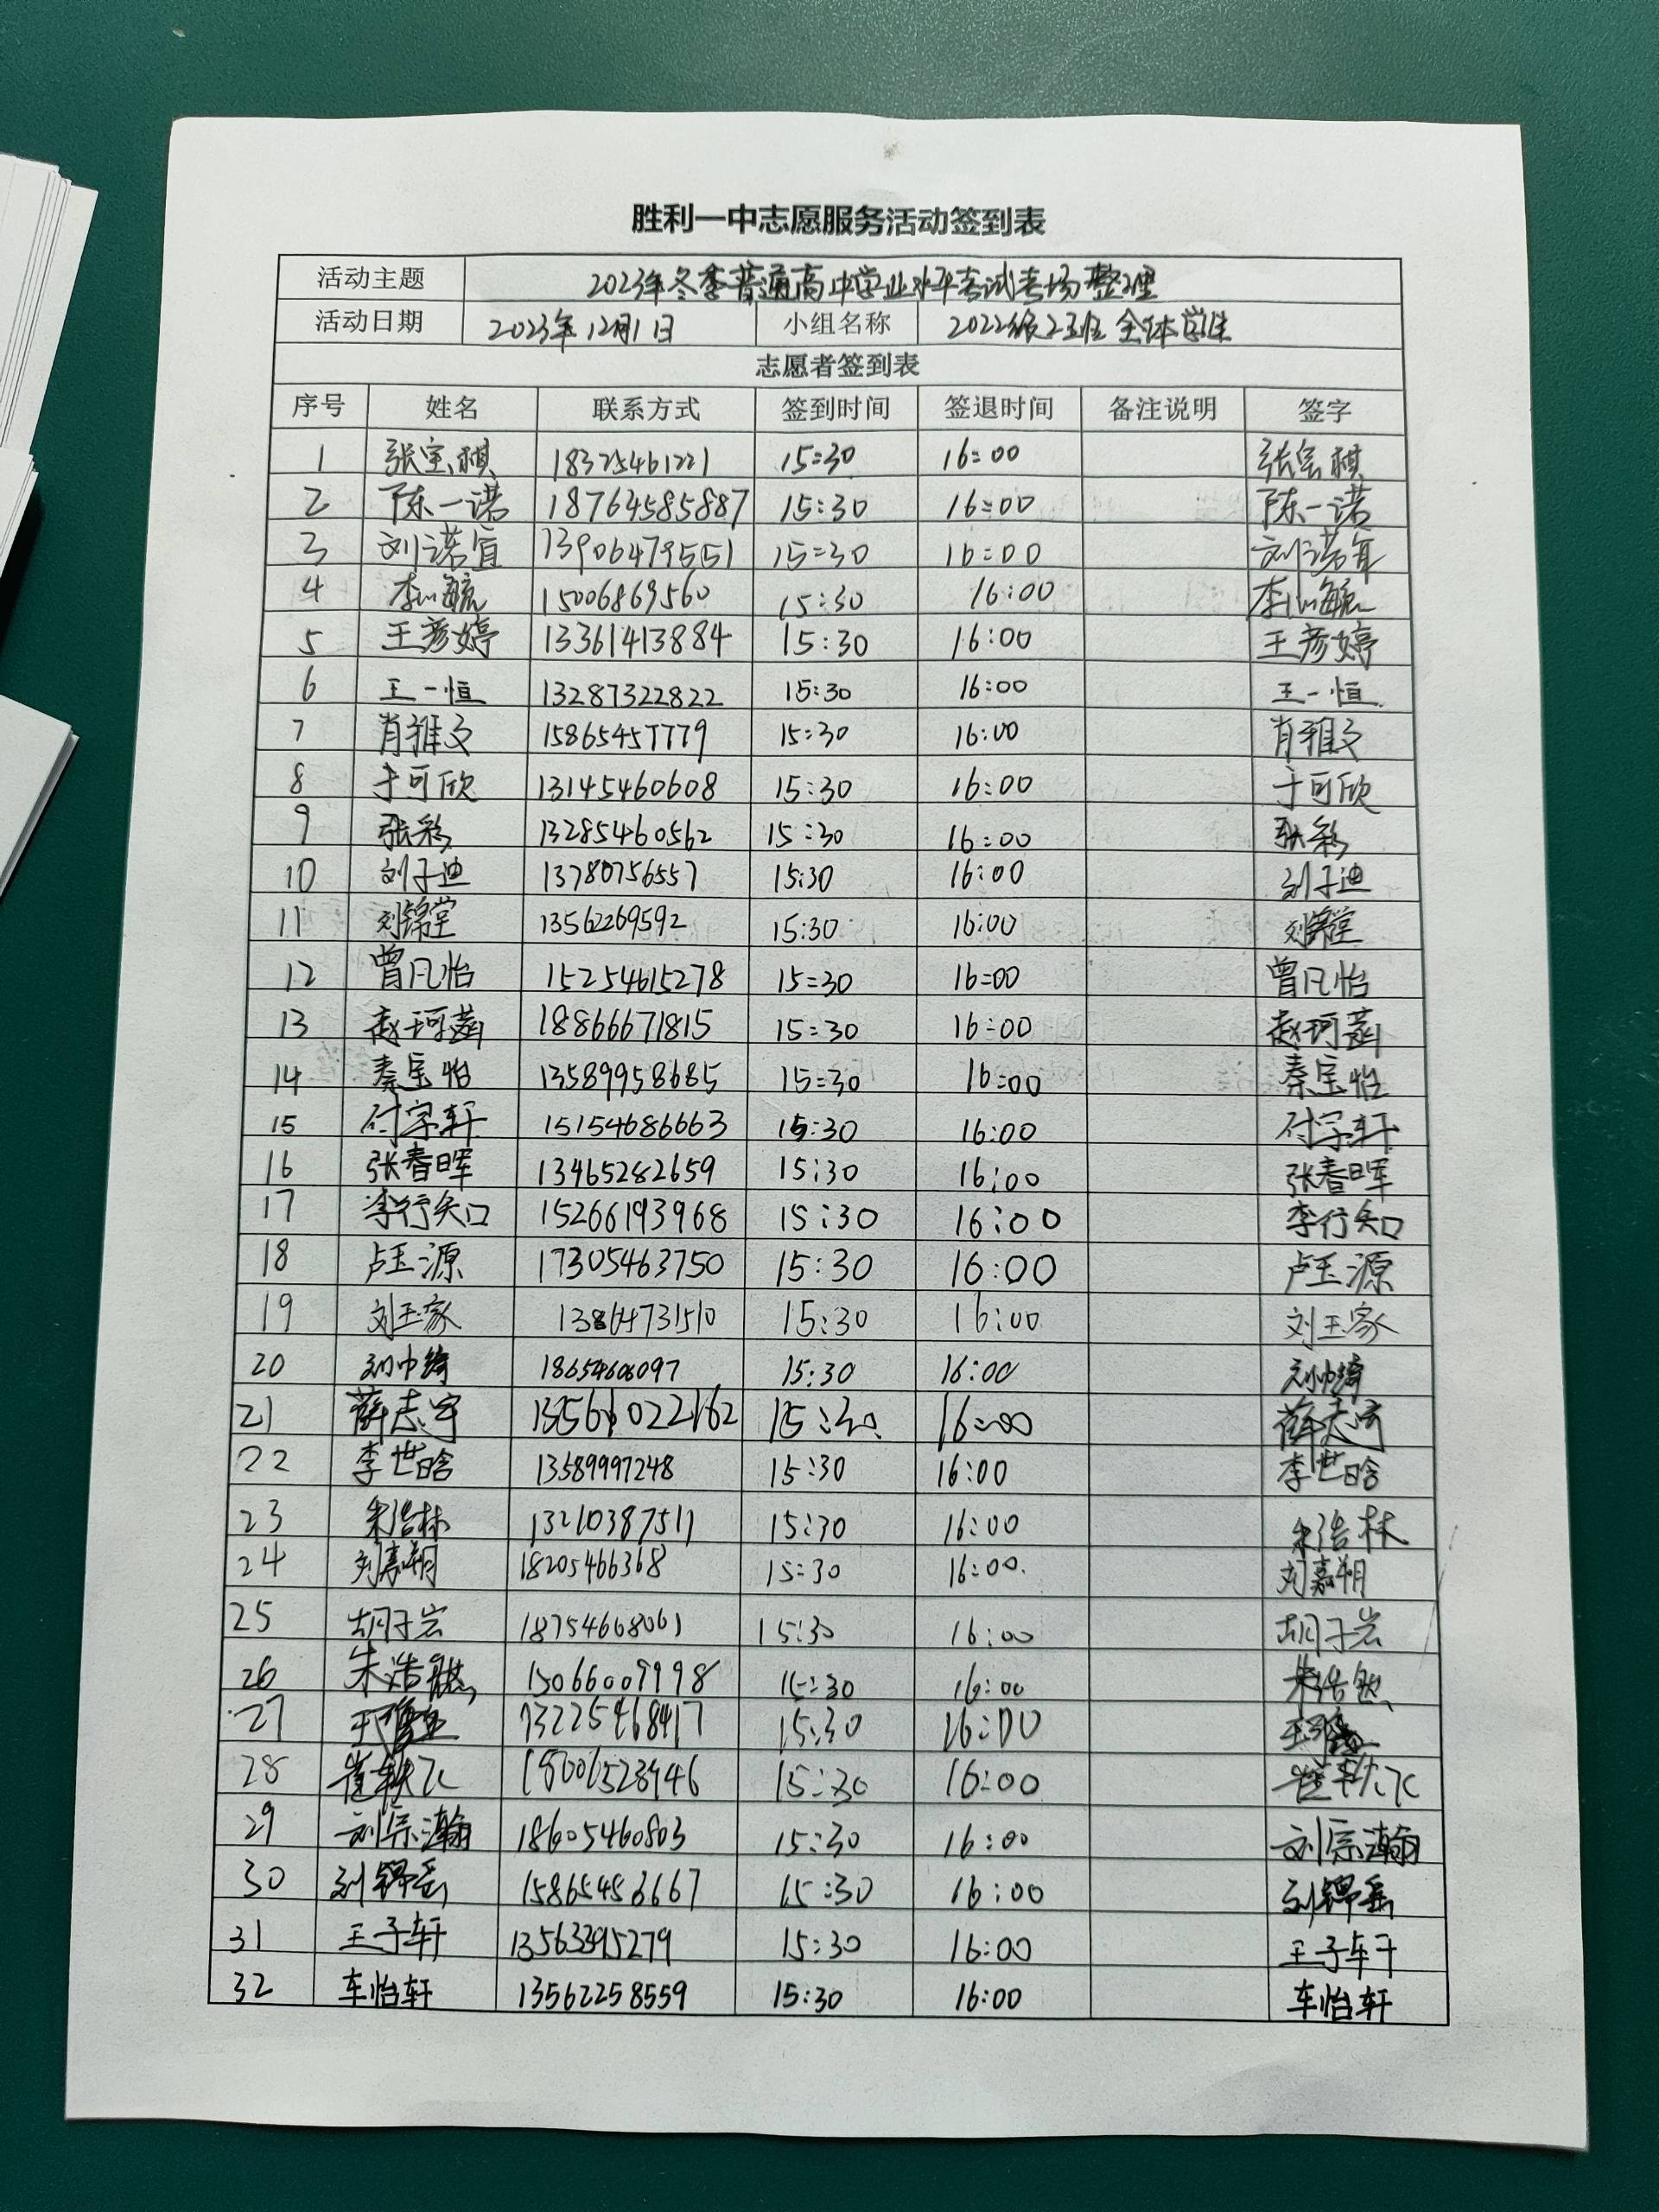 胜利一中志愿服务活动签到表
活动主题 2023年冬季普通高中学业水平考试考场整理
活动日期 2023年12月1日 小组名称 2022级23班全体学生
志愿者签到表
序号 姓名 联系方式 签到时间 签退时间 备注说明 签字
1 张宝祺 18325461221 15:30 16:00 张宝祺
2 陈一诺 18764585887 15:30 16:00 陈一诺
3 刘诺宜 13906479551 15:30 16:00 刘诺宜
4 15006869560 15:30 16:00
5 王彦婷 13361413884 15:30 16:00 王彦婷
6 王一恒 13287322822 15:30 16:00 王一恒
7 肖雅文 15865457779 15:30 16:00 肖雅文
8 于可欣 13145460608 15:30 16:00 于可欣
9 张彩 13285460562 15:30 16:00 张彩
10 刘子迪 13780756557 15:30 16:00 刘子迪
11 刘锦堂 13562269592 15:30 16:00 刘锦堂
12 曾凡怡 15254615278 15:30 16:00 曾凡怡
13 赵珂菡 18866671815 15:30 16:00 赵珂菡
14 秦宝怡 13589958685 15:30 16:00 秦宝怡
15 付字轩 15154686663 15:30 16:00 付字轩
16 张春晖 13465282659 15:30 16:00 张春晖
17 李行知 15266193968 15:30 16:00 李行知
18 卢玉源 17305463750 15:30 16:00 卢玉源
19 刘玉家 13864731510 15:30 16:00 刘玉家
20 18654606097 15:30 16:00
21 薛志宇 15:30 16:00 薛志宇
22 李世晗 13589997248 15:30 16:00 李世晗
23 朱浩林 13210387511 15:30 16:00 朱浩林
24 刘嘉朔 18205466368 15:30 16:00 刘嘉朔
25 胡子岩 18754668061 15:30 16:00 胡子岩
26 朱浩 15066009998 15:30 16:00 朱浩
27 13225468417 15:30 16:00
28 崔轶飞 15:30 16:00 崔轶飞
29 刘宗瀚 18605460803 15:30 16:00 刘宗瀚
30 刘锦岳 15865453667 15:30 16:00 刘锦岳
31 王子轩 13563395279 15:30 16:00 王子轩
32 车怡轩 13562258559 15:30 16:00 车怡轩